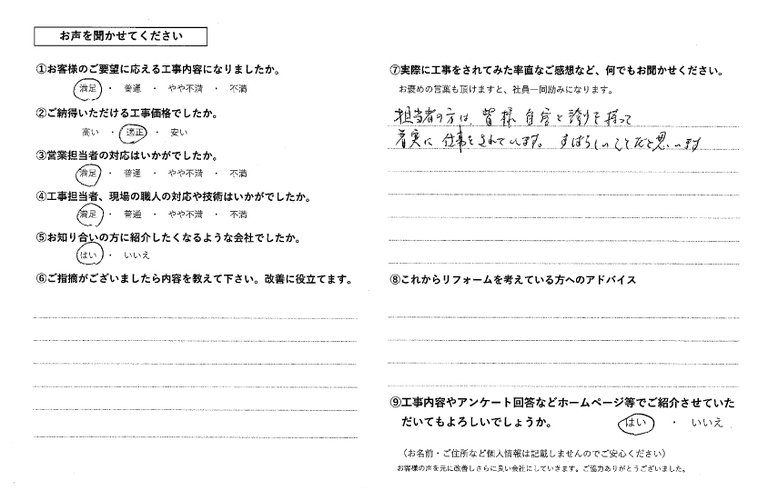 お声を聞かせてください
①お客様のご要望に応える工事内容になりましたか。
満足 ・ 普通 ・ やや不満 ・ 不満
②ご納得いただける工事価格でしたか。
高い ・ 適正 ・ 安い
③営業担当者の対応はいかがでしたか。
満足 ・ 普通 ・ やや不満 ・ 不満
④工事担当者、現場の職人の対応や技術はいかがでしたか。
満足 ・ 普通 ・ やや不満 ・ 不満
⑤お知り合いの方に紹介したくなるような会社でしたか。
はい ・ いいえ
⑥ご指摘がございましたら内容を教えて下さい。改善に役立てます。
⑦実際に工事をされてみた率直なご感想など、何でもお聞かせください。
お褒めの言葉も頂けますと、社員一同励みになります。
担当者の方は、皆様自信と誇りを持って
着実に仕事をされています。すばらしいことだと思います
⑧これからリフォームを考えている方へのアドバイス
⑨工事内容やアンケート回答などホームページ等でご紹介させていた
だいてもよろしいでしょうか。 はい ・ いいえ
（お名前・ご住所など個人情報は記載しませんのでご安心ください）
お客様の声を元に改善しさらに良い会社にしていきます。ご協力ありがとうございました。